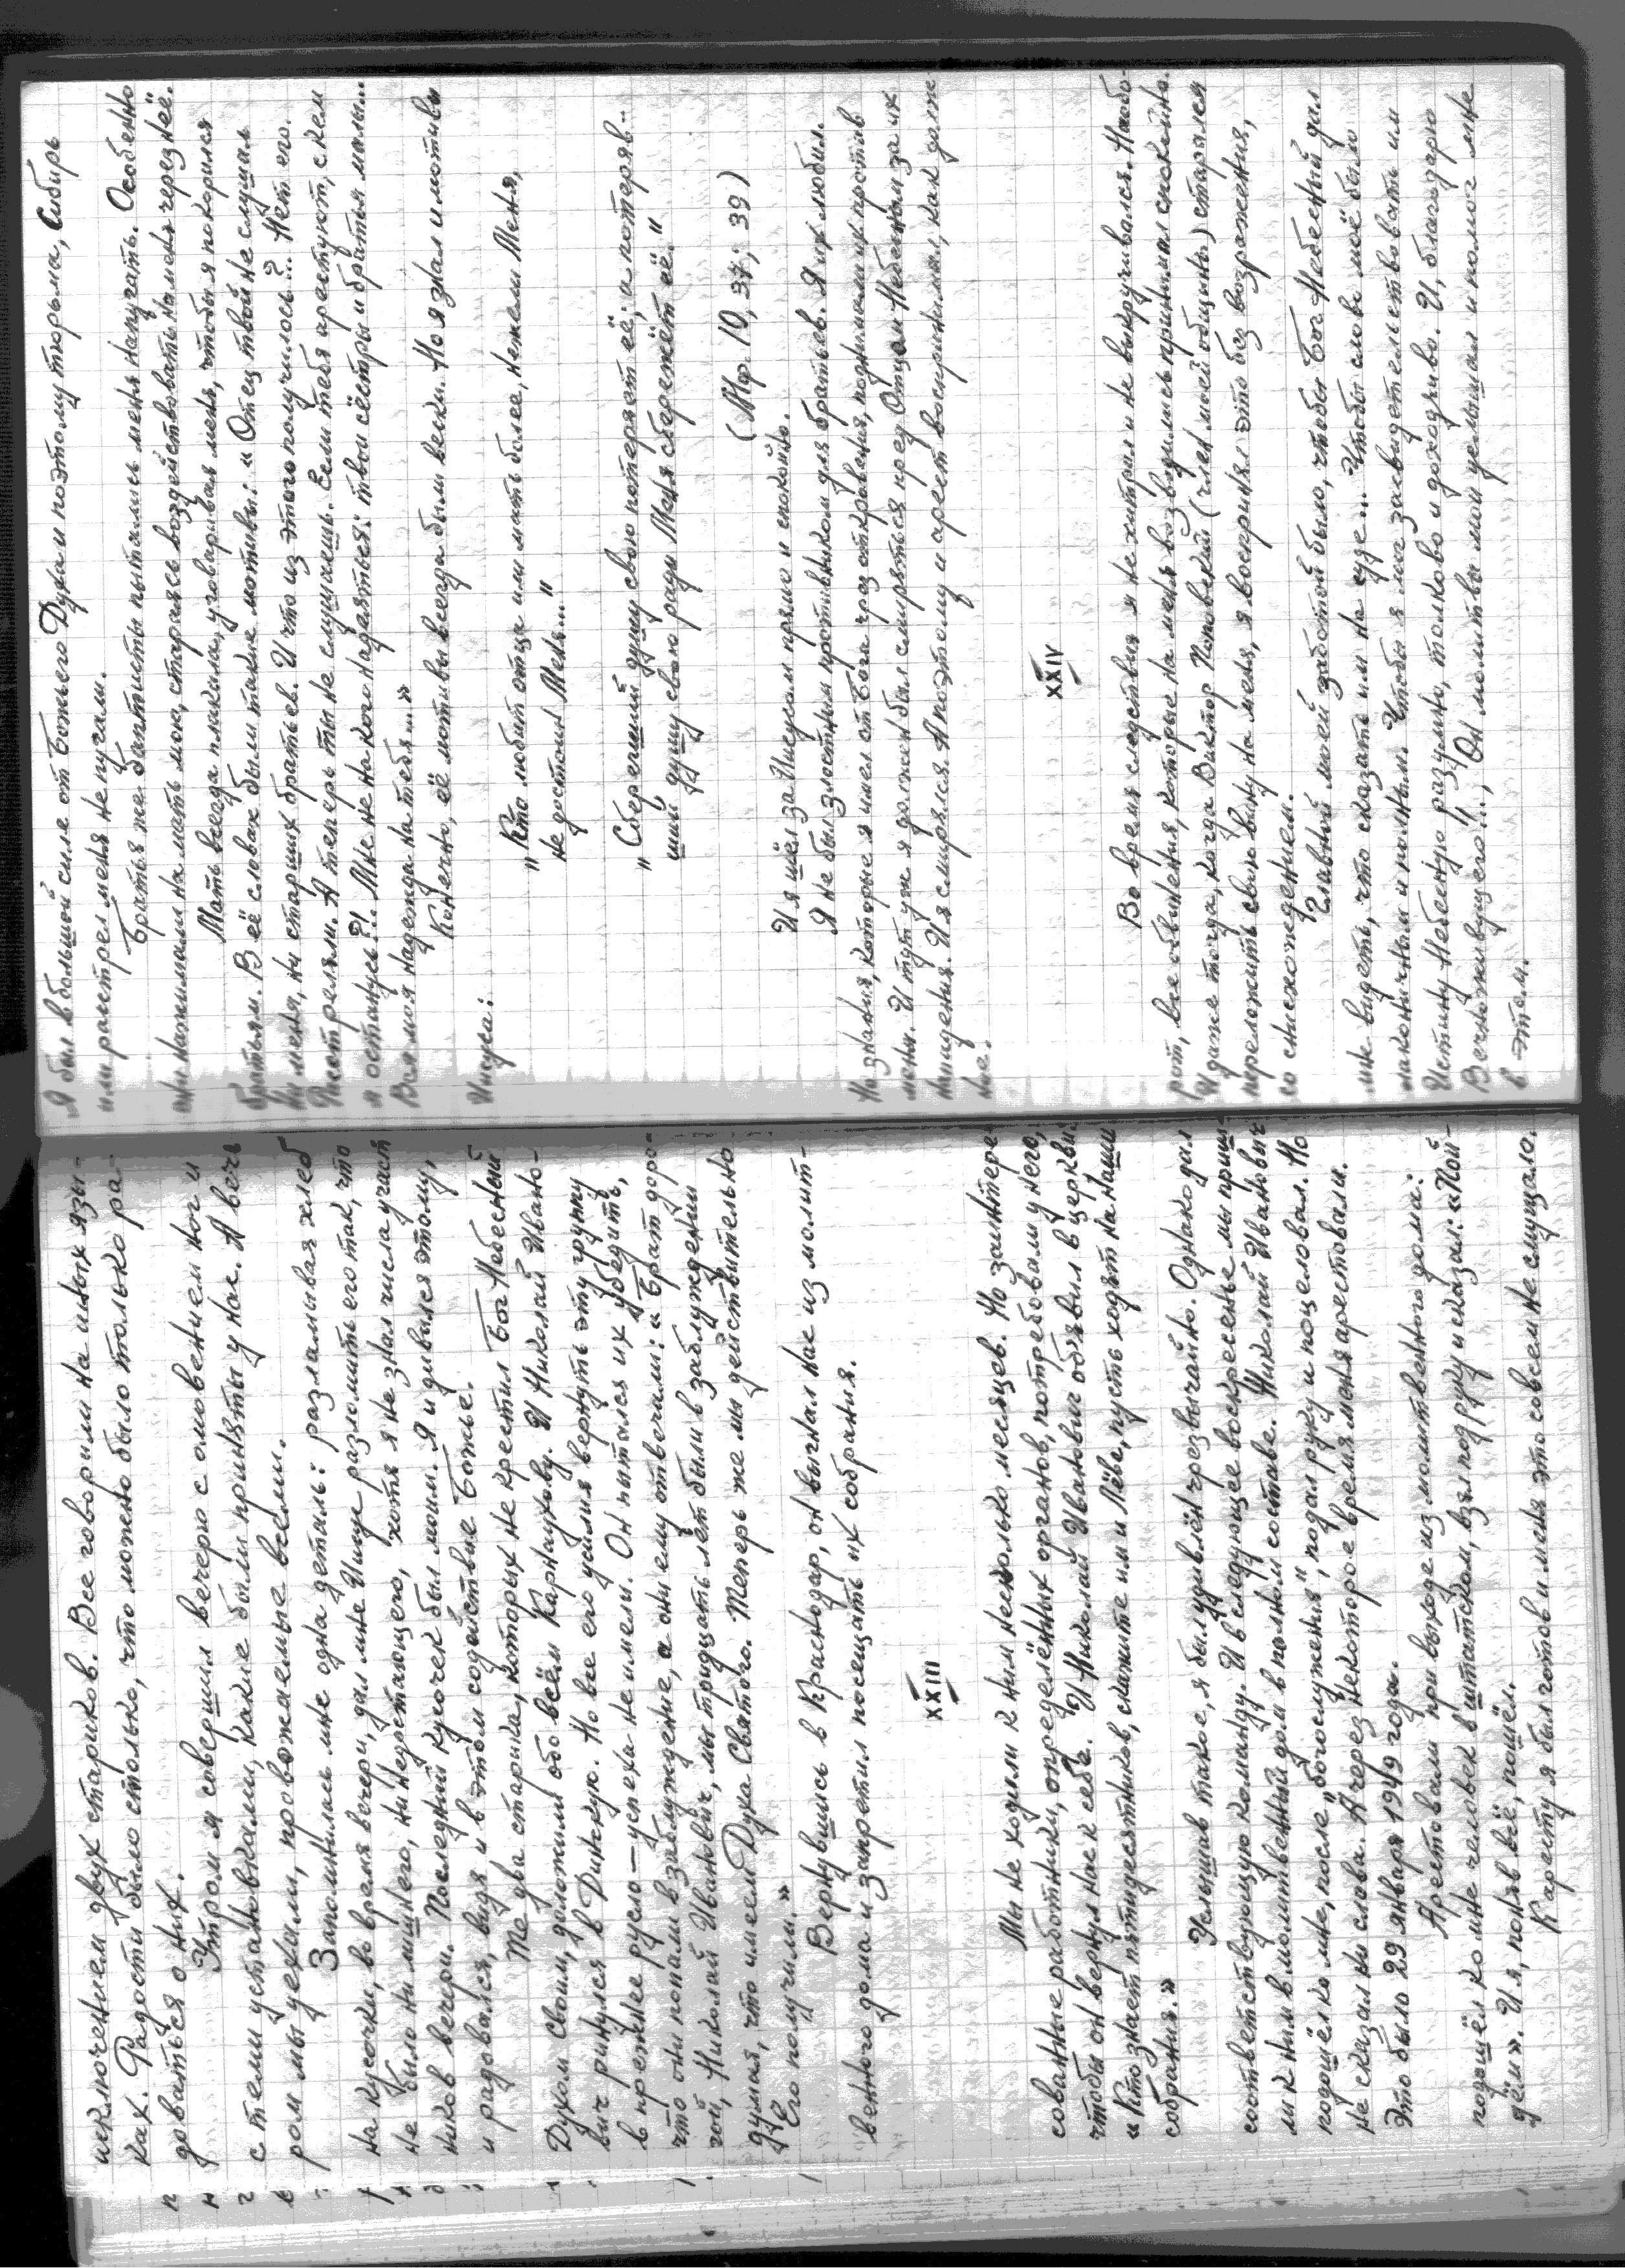 исключением двух стариков. Все говорили на иных язы-
ках. Радости было столько, что можно было только ра-
доваться о них.
Утром я совершил вечерю с омовением ног и
с теми установками, какие были приняты у нас. А вече
ром мы уехали, провожаемые всеми.
Запомнилась мне одна деталь: разламывая хлеб
на кусочки, во время вечери, дал мне Иисус разломить его так, что
не было ни лишнего, ни недостающего, хотя я не знал числа участ
ников вечери. Последний кусочек был моим. Я и дивился этому,
и радовался, видя и в этом содействие Божье.
Те два старика, которых не крестил Бог Небесный
Духом Своим, доложили обо всём Карнаухову. И Николай Ивано-
вич ринулся в Динскую. Но все его усилия вернуть эту группу
в прежнее русло — успеха не имели. Он пытался их убедить,
что они попали в заблуждение, а они ему отвечали: « Брат доро-
гой, Николай Иванович, мы тридцать лет были в заблуждении
думая, что имеем Духа Святого. Теперь же мы действительно
Его получили.»
Вернувшись в Краснодар, он выгнал нас из молит-
венного дома и запретил посещать их собрания.
XXIII
Мы не ходили к ним несколько месяцев. Но заинтере-
сованные работники, определённых органов, потребовали у него,
чтобы он вернул нас к себе. И Николай Иванович объявил в церкви:
« Кто знает пятидесятников, скажите им и Лёве, пусть ходят на наши
собрания.»
Услышав такое, я был удивлён чрезвычайно. Однако дал
соответствующую команду. И в следующее воскресенье мы приш-
ли к ним в молитвенный дом в полном составе. Николай Иванович
подошёл ко мне, после „богослужения", подал руку и поцеловал. Но
не сказал ни слова. А через некоторое время меня арестовали.
Это было 29 января 1949 года.
Арестовали при выходе из молитвенного дома:
подошёл ко мне человек в штатском, взял под руку и сказал: « Пой-
дём». И я, поняв всё, пошёл.
К аресту я был готов и меня это совсем не смущало.
Я был в большой силе от Божьего Духа и поэтому тюрьма, Сибирь
или расстрел меня не пугали.
Братья же баптисты пытались меня напугать. Особенно
они нажимали на мать мою, стараясь воздействовать на меня через неё.
Мать всегда плакала, уговаривая меня, чтобы я покорился
братьям. В её словах были такие мотивы: « Отец твой не слушал
ни меня, ни старших братьев. И что из этого получилось?... Нет его.
Расстреляли. А теперь ты не слушаешь. Если тебя арестуют, с кем
я останусь?!. Мне не на кого надеяться: твои сёстры и братья малы...
Вся моя надежда на тебя...»
Конечно, её мотивы всегда были вески. Но я знал и мотивы
Иисуса:
„ Кто любит отца или мать более, нежели Меня,
не достоин Меня..."
„ Сберегший душу свою потеряет её; а потеряв-
ший душу свою ради Меня сбережёт её."
(Мф. 10, 37; 39)
И я шёл за Иисусом прямо и спокойно.
Я не был злостным противником для братьев. Я их любил.
Но знания, которые я имел от Бога чрез откровения, поднимали их против
меня. И тут уж я должен был смиряться пред Отцом Небесным за их
нападения. И я смирялся. А поэтому и арест воспринимал, как долж
ное.
XXIV
Во время следствия я не хитрил и не выкручивался. Наобо-
рот, все обвинения, которые на меня возводились принимал спокойно.
И даже тогда, когда Виктор Поповский (член моей общины) старался
переложить свою вину на меня, я воспринял это без возражения,
со снисхождением.
Главной моей заботой было, чтобы Бог Небесный дал
мне видеть, что сказать им на суде... Чтобы слово моё было
лаконичным и полным. Чтобы я мог засвидетельствовать им
Истину Небесную разумно, толково и доходчиво. И, благодарю
Вечноживущего!!..., Он молитвы мои услышал и помог мне
в этом.